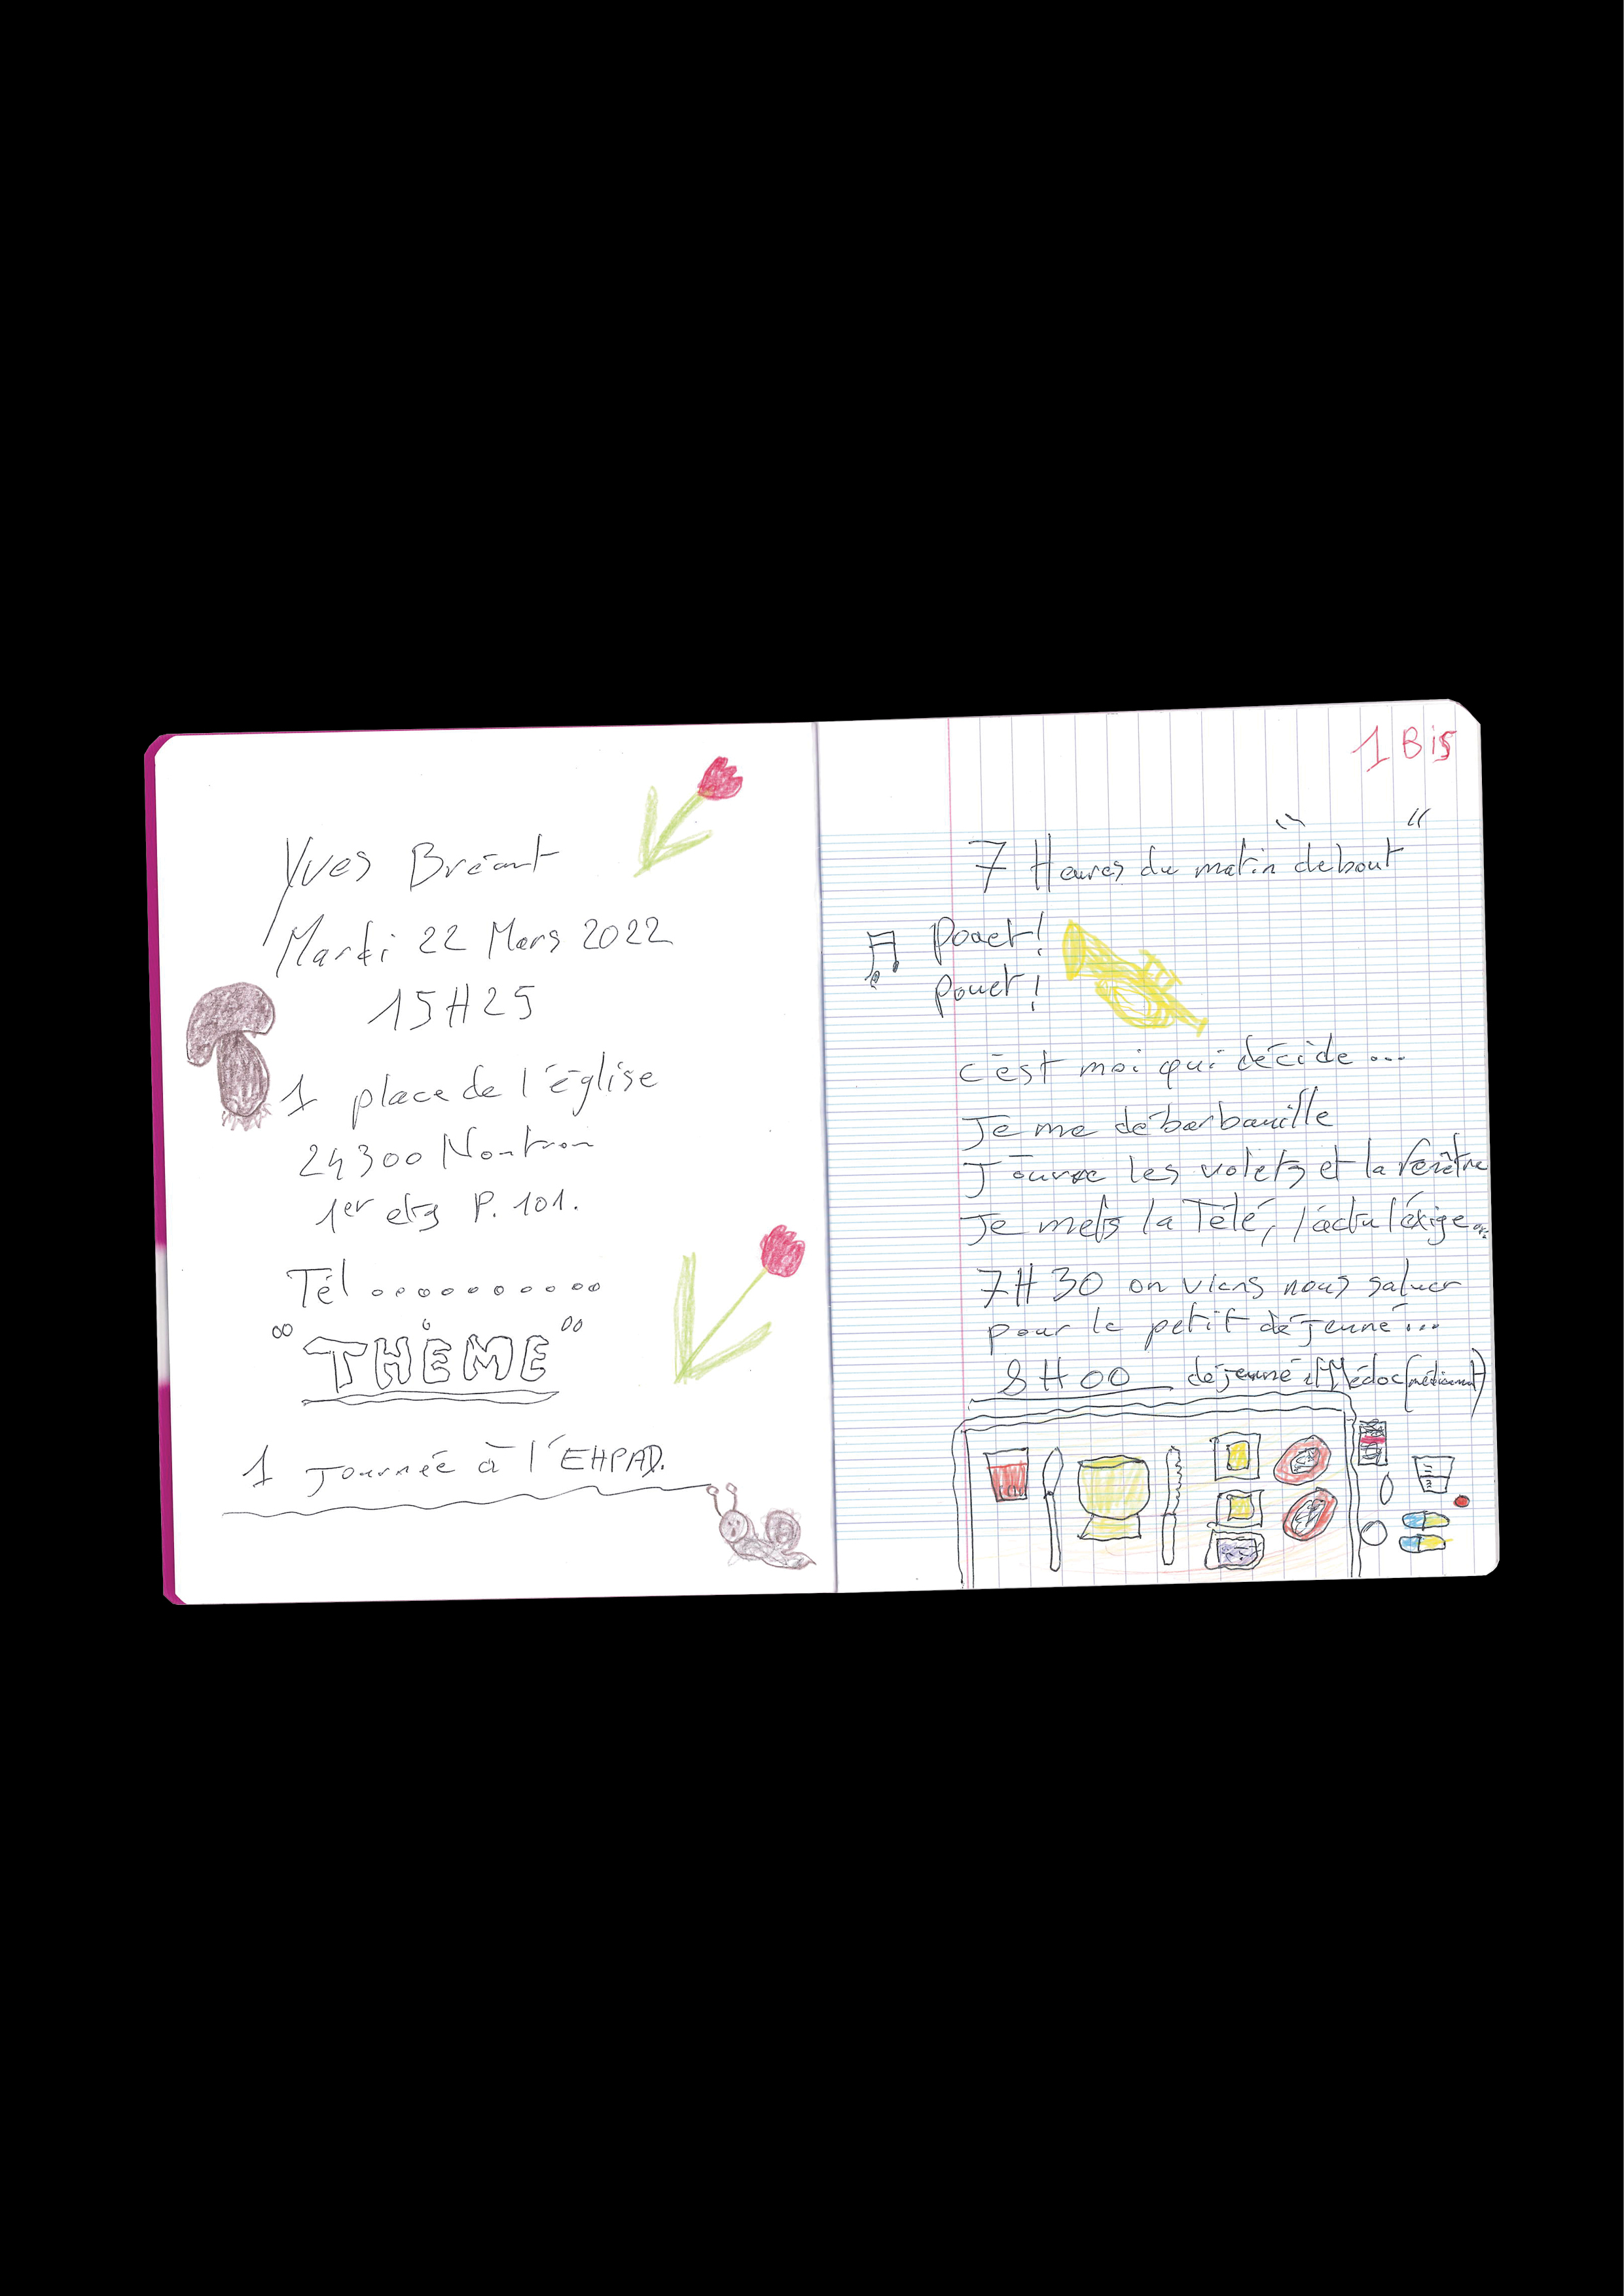 Yves Bréant
Mardi 22 Mars 2022
15H25
1 place de l'église
24300 Nontron
1er etg P. 101.
Tél ..........
"THÈME"
1 Journée à l'EHPAD.
1 Bis
7 Heures du matin "debout"
Pouet!
Pouet!
c'est moi qui décide...
Je me débarbouille
J'ouvre les volets et la fenêtre
Je mets la Télé, l'actu l'éxige...
7H30 on viens nous saluer
pour le petit déjeuné...
8H00 déjeuné Médoc